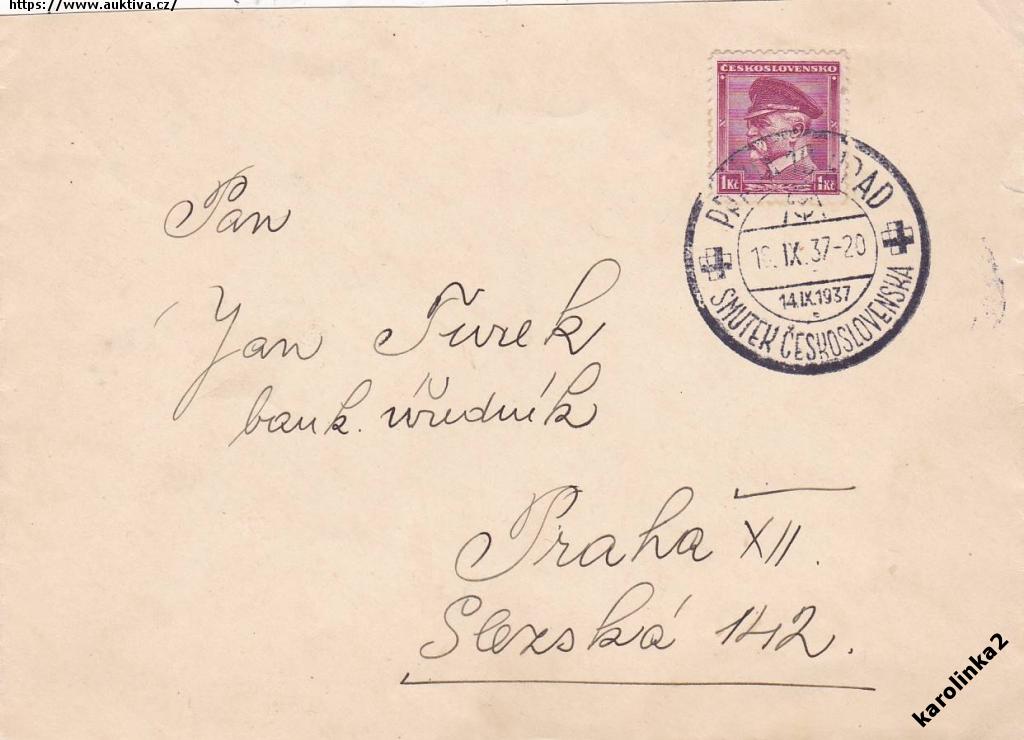 https://www.auktiva.cz/
ČESKOSLOVENSKO
1 Kč 1 Kč
HRAD
IX.37-20
14.IX.1937
SMUTEK ČESKOSLOVENSKA
Pan
Jan Turek
bank. úředník
Praha XII.
Slezská 142.
karolinka2